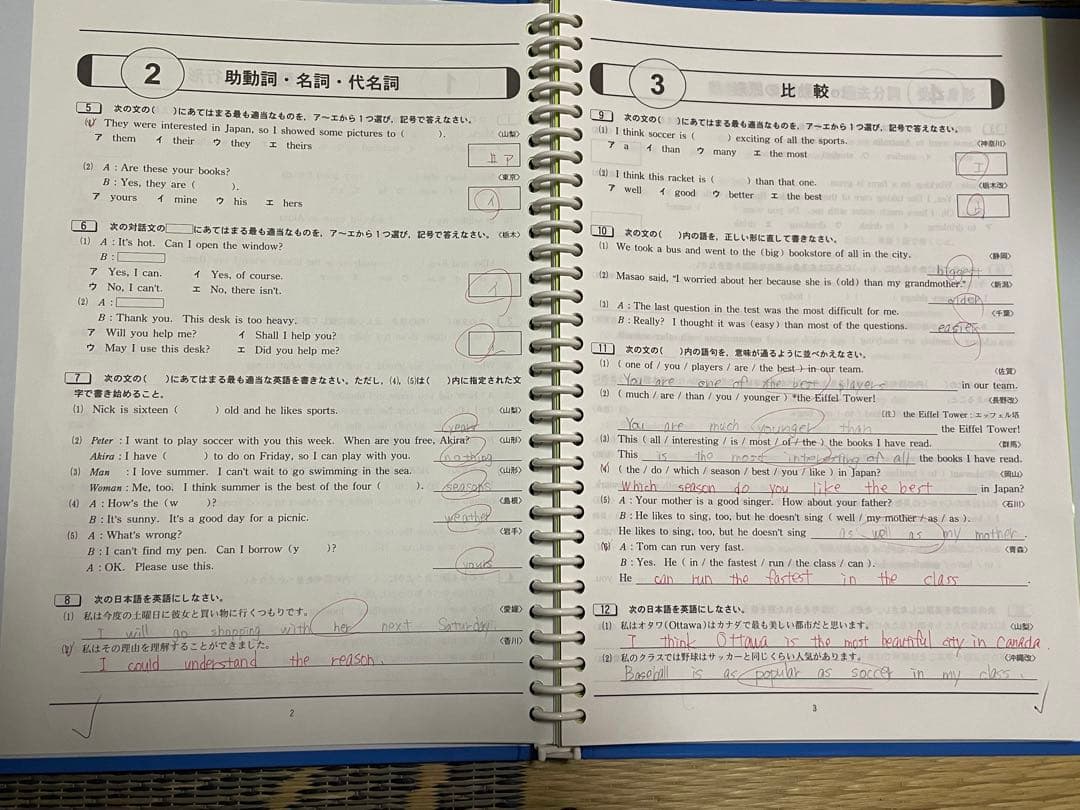 2 助動詞・名詞・代名詞
5 次の文の( )にあてはまる最も適当なものを，ア～エから1つ選び，記号で答えなさい。
(1) They were interested in Japan, so I showed some pictures to ( ). 〈山梨〉
ア them イ their ウ they エ theirs
ア
(2) A : Are these your books? 〈東京〉
B : Yes, they are ( ).
ア yours イ mine ウ his エ hers
イ
6 次の対話文の にあてはまる最も適当なものを，ア～エから1つ選び，記号で答えなさい。〈栃木〉
(1) A : It's hot. Can I open the window?
B :
ア Yes, I can. イ Yes, of course.
ウ No, I can't. エ No, there isn't.
イ
(2) A :
B : Thank you. This desk is too heavy.
ア Will you help me? イ Shall I help you?
ウ May I use this desk? エ Did you help me?
イ
7 次の文の( )にあてはまる最も適当な英語を書きなさい。ただし，(4)，(5)は( )内に指定された文
字で書き始めること。
(1) Nick is sixteen ( ) old and he likes sports. 〈山梨〉
years
(2) Peter : I want to play soccer with you this week. When are you free, Akira? 〈山形〉
Akira : I have ( ) to do on Friday, so I can play with you. nothing
(3) Man : I love summer. I can't wait to go swimming in the sea. 〈山形〉
Woman : Me, too. I think summer is the best of the four ( ). seasons
(4) A : How's the (w )? 〈島根〉
B : It's sunny. It's a good day for a picnic. weather
(5) A : What's wrong? 〈岩手〉
B : I can't find my pen. Can I borrow (y )?
A : OK. Please use this. yours
8 次の日本語を英語にしなさい。
(1) 私は今度の土曜日に彼女と買い物に行くつもりです。 〈愛媛〉
I will go shopping with her next Saturday.
(2) 私はその理由を理解することができました。 〈香川〉
I could understand the reason.
2
3 比較
9 次の文の( )にあてはまる最も適当なものを，ア～エから1つ選び，記号で答えなさい。
(1) I think soccer is ( ) exciting of all the sports. 〈神奈川〉
ア a イ than ウ many エ the most
エ
(2) I think this racket is ( ) than that one. 〈栃木改〉
ア well イ good ウ better エ the best
ウ
10 次の文の( )内の語を，正しい形に直して書きなさい。
(1) We took a bus and went to the (big) bookstore of all in the city. 〈静岡〉
biggest
(2) Masao said, "I worried about her because she is (old) than my grandmother." 〈新潟〉
older
(3) A : The last question in the test was the most difficult for me. 〈千葉〉
B : Really? I thought it was (easy) than most of the questions. easier
11 次の文の( )内の語句を，意味が通るように並べかえなさい。
(1) ( one of / you / players / are / the best ) in our team. 〈佐賀〉
You are one of the best players in our team.
(2) ( much / are / than / you / younger ) *the Eiffel Tower! 〈長野改〉
(注) the Eiffel Tower：エッフェル塔
You are much younger than the Eiffel Tower!
(3) This ( all / interesting / is / most / of / the ) the books I have read. 〈群馬〉
This is the most interesting of all the books I have read.
(4) ( the / do / which / season / best / you / like ) in Japan? 〈岡山〉
Which season do you like the best in Japan?
(5) A : Your mother is a good singer. How about your father? 〈石川〉
B : He likes to sing, too, but he doesn't sing ( well / my mother / as / as ).
He likes to sing, too, but he doesn't sing as well as my mother.
(6) A : Tom can run very fast. 〈青森〉
B : Yes. He ( in / the fastest / run / the class / can ).
He can run the fastest in the class.
12 次の日本語を英語にしなさい。
(1) 私はオタワ(Ottawa)はカナダで最も美しい都市だと思います。 〈山梨〉
I think Ottawa is the most beautiful city in Canada.
(2) 私のクラスでは野球はサッカーと同じくらい人気があります。 〈沖縄改〉
Baseball is as popular as soccer in my class.
3